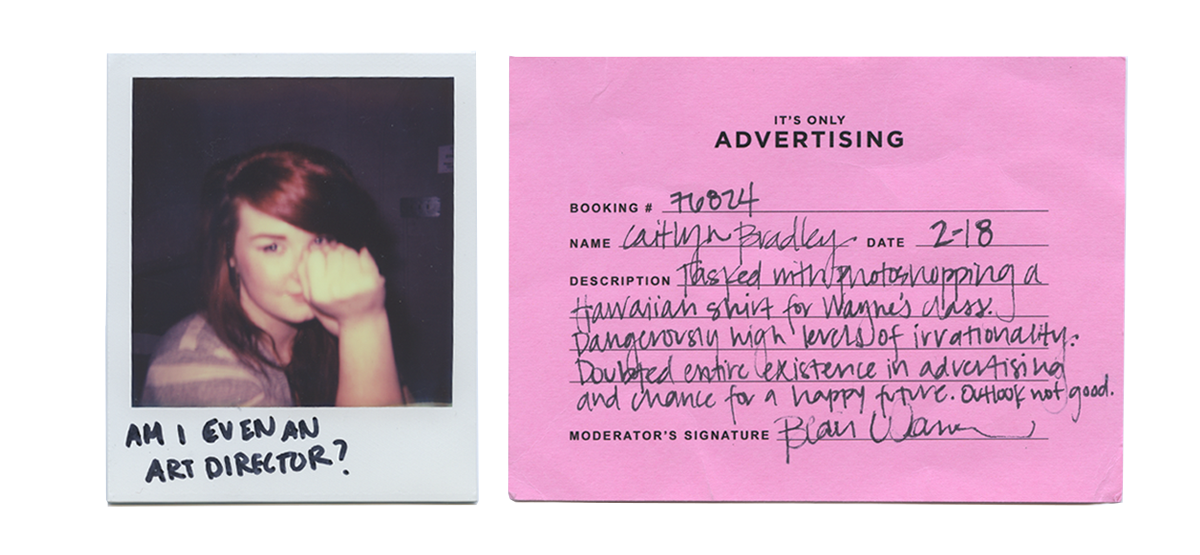 AM I EVEN AN
ART DIRECTOR?
IT'S ONLY
ADVERTISING
BOOKING # 76824
NAME Caitlyn Bradley DATE 2-18
DESCRIPTION Tasked with photoshopping a
Hawaiian shirt for Wayne's class.
Dangerously high levels of irrationality.
Doubted entire existence in advertising
and chance for a happy future. Outlook not good.
MODERATOR'S SIGNATURE Blair